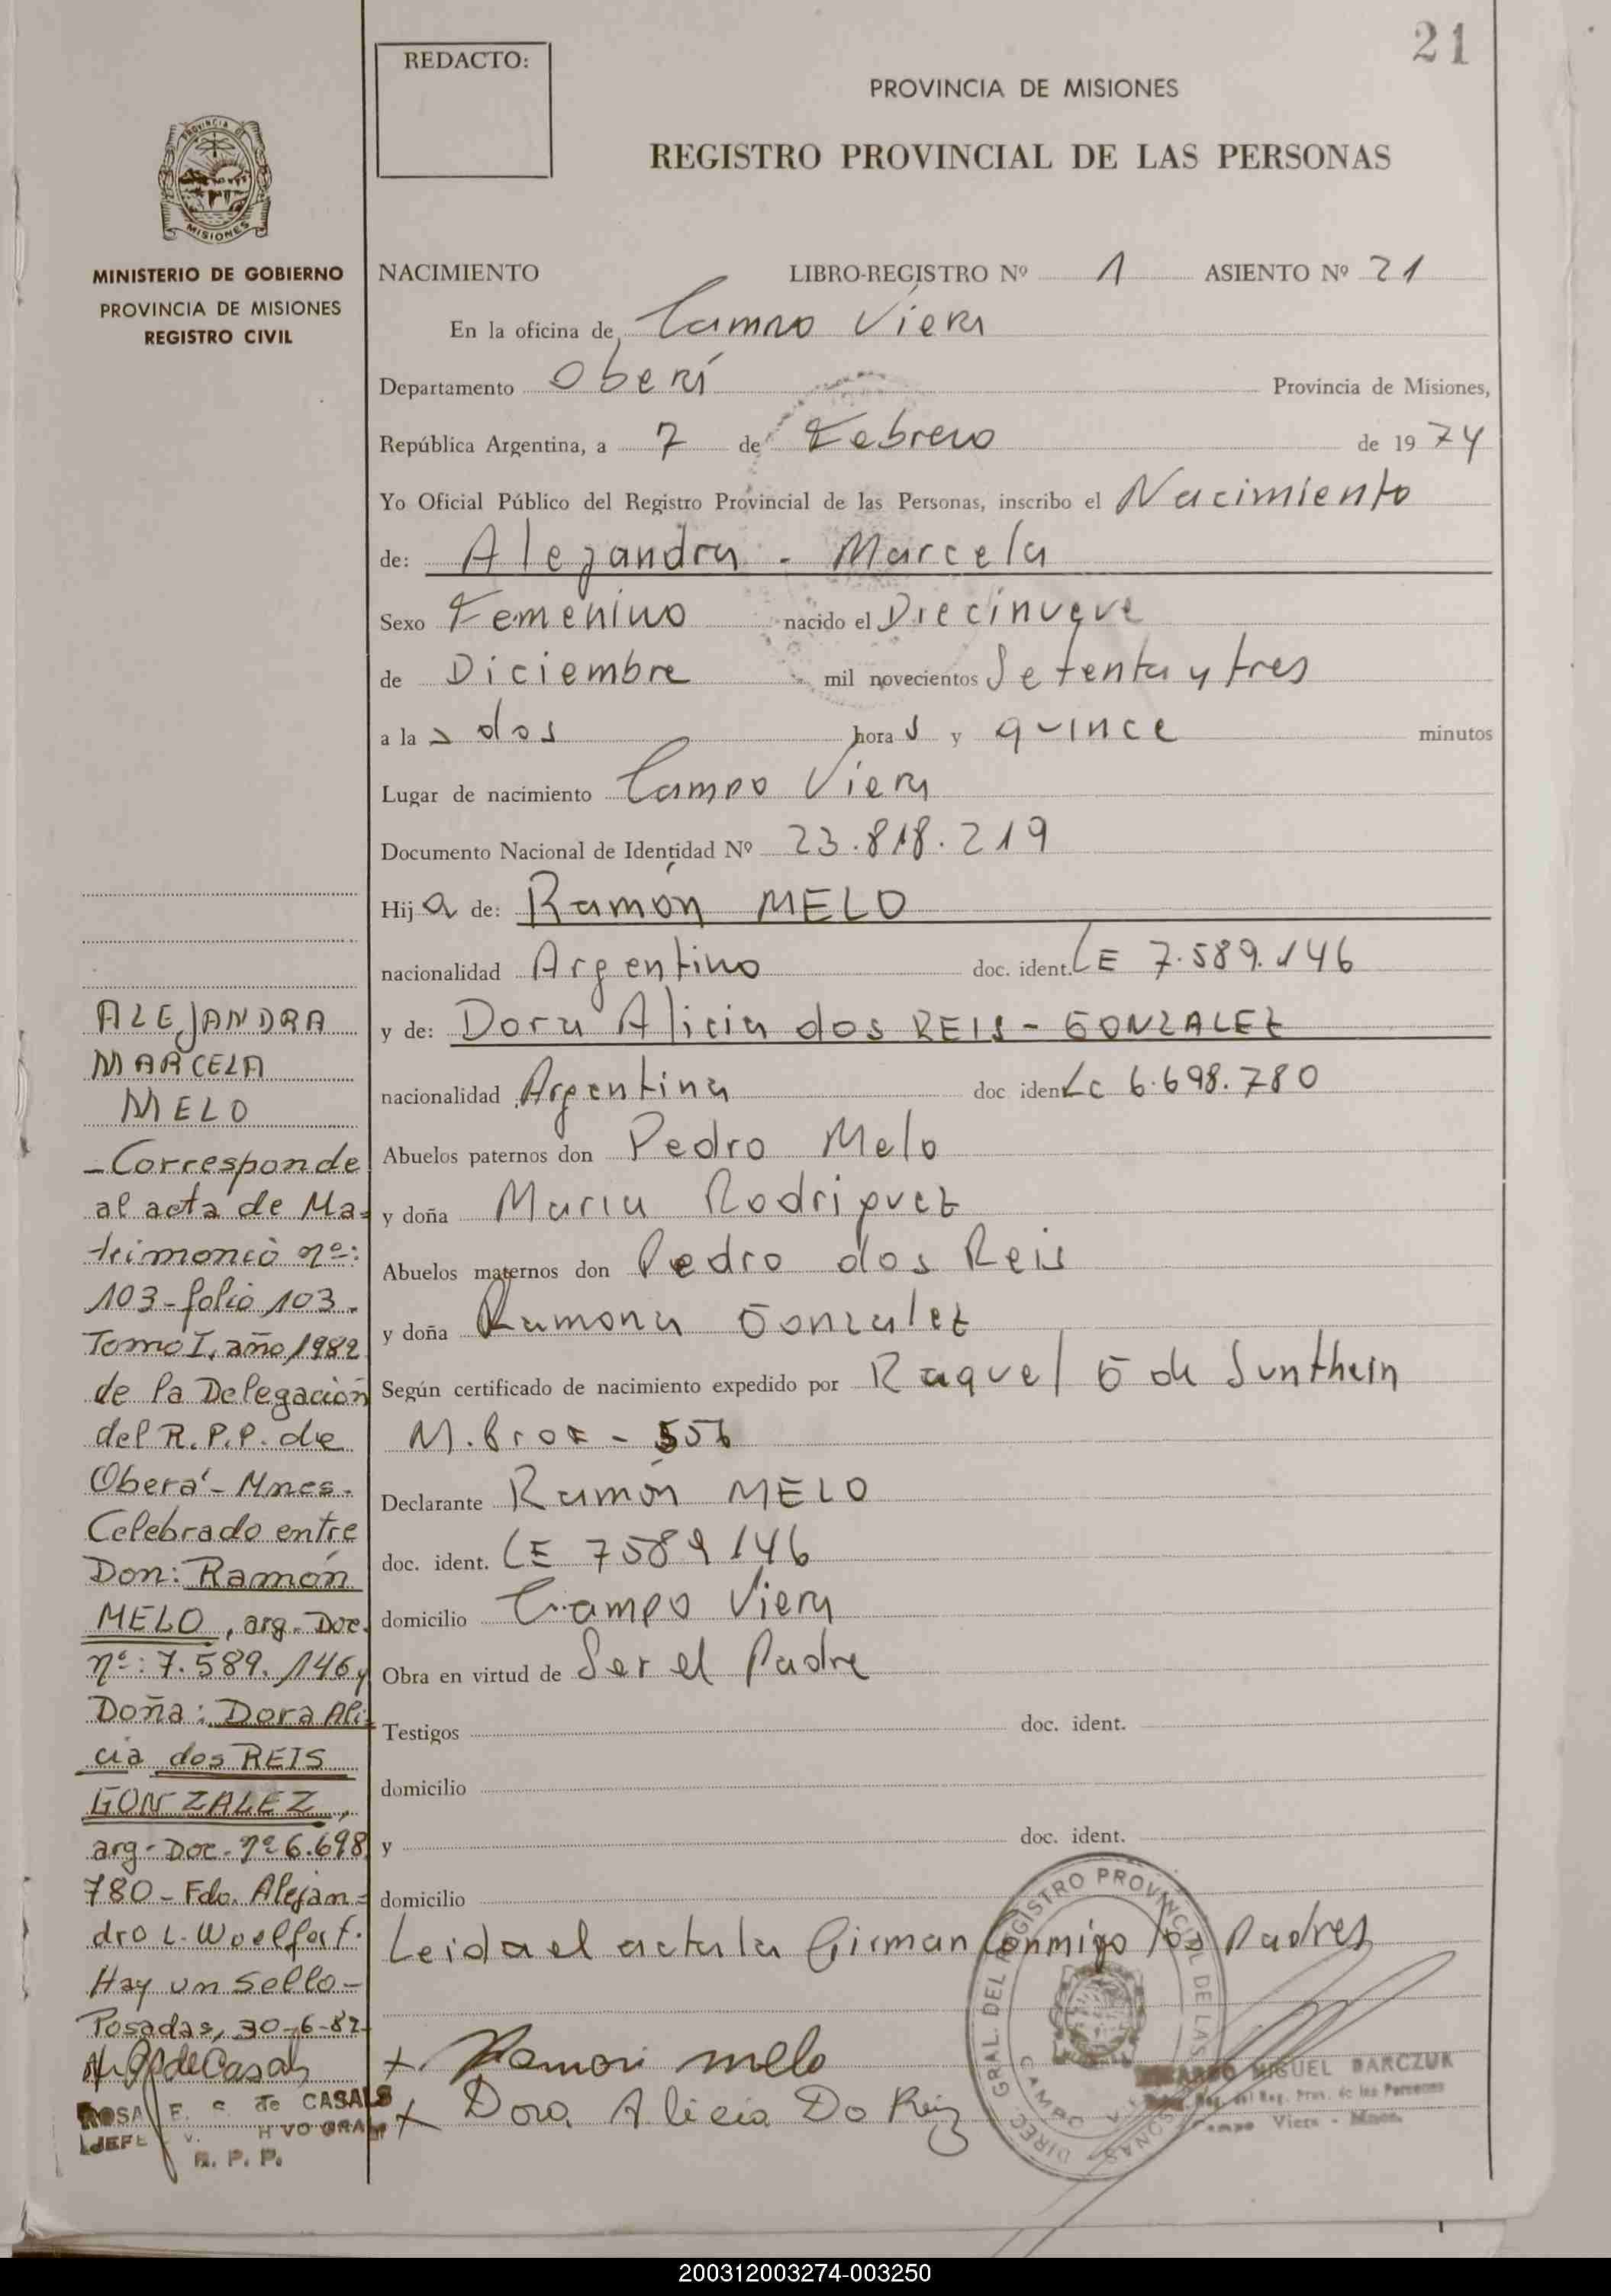 21
REDACTO:
PROVINCIA DE MISIONES
REGISTRO PROVINCIAL DE LAS PERSONAS
PROVINCIA DE
MISIONES
MINISTERIO DE GOBIERNO
PROVINCIA DE MISIONES
REGISTRO CIVIL
NACIMIENTO LIBRO-REGISTRO Nº 1 ASIENTO Nº 21
En la oficina de Campo Viera
Departamento Oberá Provincia de Misiones,
República Argentina, a 7 de Febrero de 1974
Yo Oficial Público del Registro Provincial de las Personas, inscribo el Nacimiento
de: Alejandra - Marcela
Sexo Femenino nacido el Diecinueve
de Diciembre mil novecientos Setenta y tres
a las dos horas y quince minutos
Lugar de nacimiento Campo Viera
Documento Nacional de Identidad Nº 23.818.219
Hija de: Ramón MELO
nacionalidad Argentino doc. ident. LE 7.589.146
y de: Dora Alicia dos REIS - GONZALEZ
nacionalidad Argentina doc ident LC 6.698.780
Abuelos paternos don Pedro Melo
y doña Maria Rodriguez
Abuelos maternos don Pedro dos Reis
y doña Ramona Gonzalez
Según certificado de nacimiento expedido por Raquel G de Sunthein
M. Prof - 556
Declarante Ramón MELO
doc. ident. LE 7589146
domicilio Campo Viera
Obra en virtud de Ser el Padre
Testigos doc. ident.
domicilio
y doc. ident.
domicilio
Leida el acta la Firman Conmigo los Padres
x Ramon melo
x Dora Alicia Do Reiz
DIREC. GRAL. DEL REGISTRO PROVINCIAL DE LAS PERSONAS
CAMPO
MIGUEL BARCZUK
del Reg. Prov. de las Personas
Campo Viera - Mnes.
ALEJANDRA
MARCELA
MELO
- Corresponde
al acta de Ma=
trimonio nº:
103 - folio 103 -
Tomo I, año 1982
de la Delegación
del R.P.P. de
Oberá - Mnes.
Celebrado entre
Don: Ramón
MELO, arg. Doc.
nº: 7.589.146 y
Doña: Dora Ali=
cia dos REIS
GONZALEZ,
arg - Doc. nº 6.698
780 - Fdo. Alejan=
dro L. Woelfert.
Hay un Sello -
Posadas, 30-6-82
de Casals
ROSA E. G. de CASALS
JEFE
R. P. P.
200312003274-003250